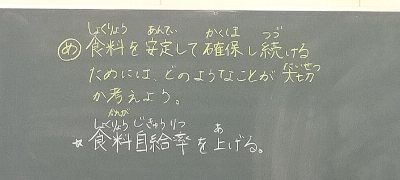 しょくりょう あんてい かくほ つづ
め 食料を安定して確保し続ける
たいせつ
ためには、どのようなことが大切
か考えよう。
かんが
しょくりょう じきゅうりつ あ
☆食料自給率を上げる。